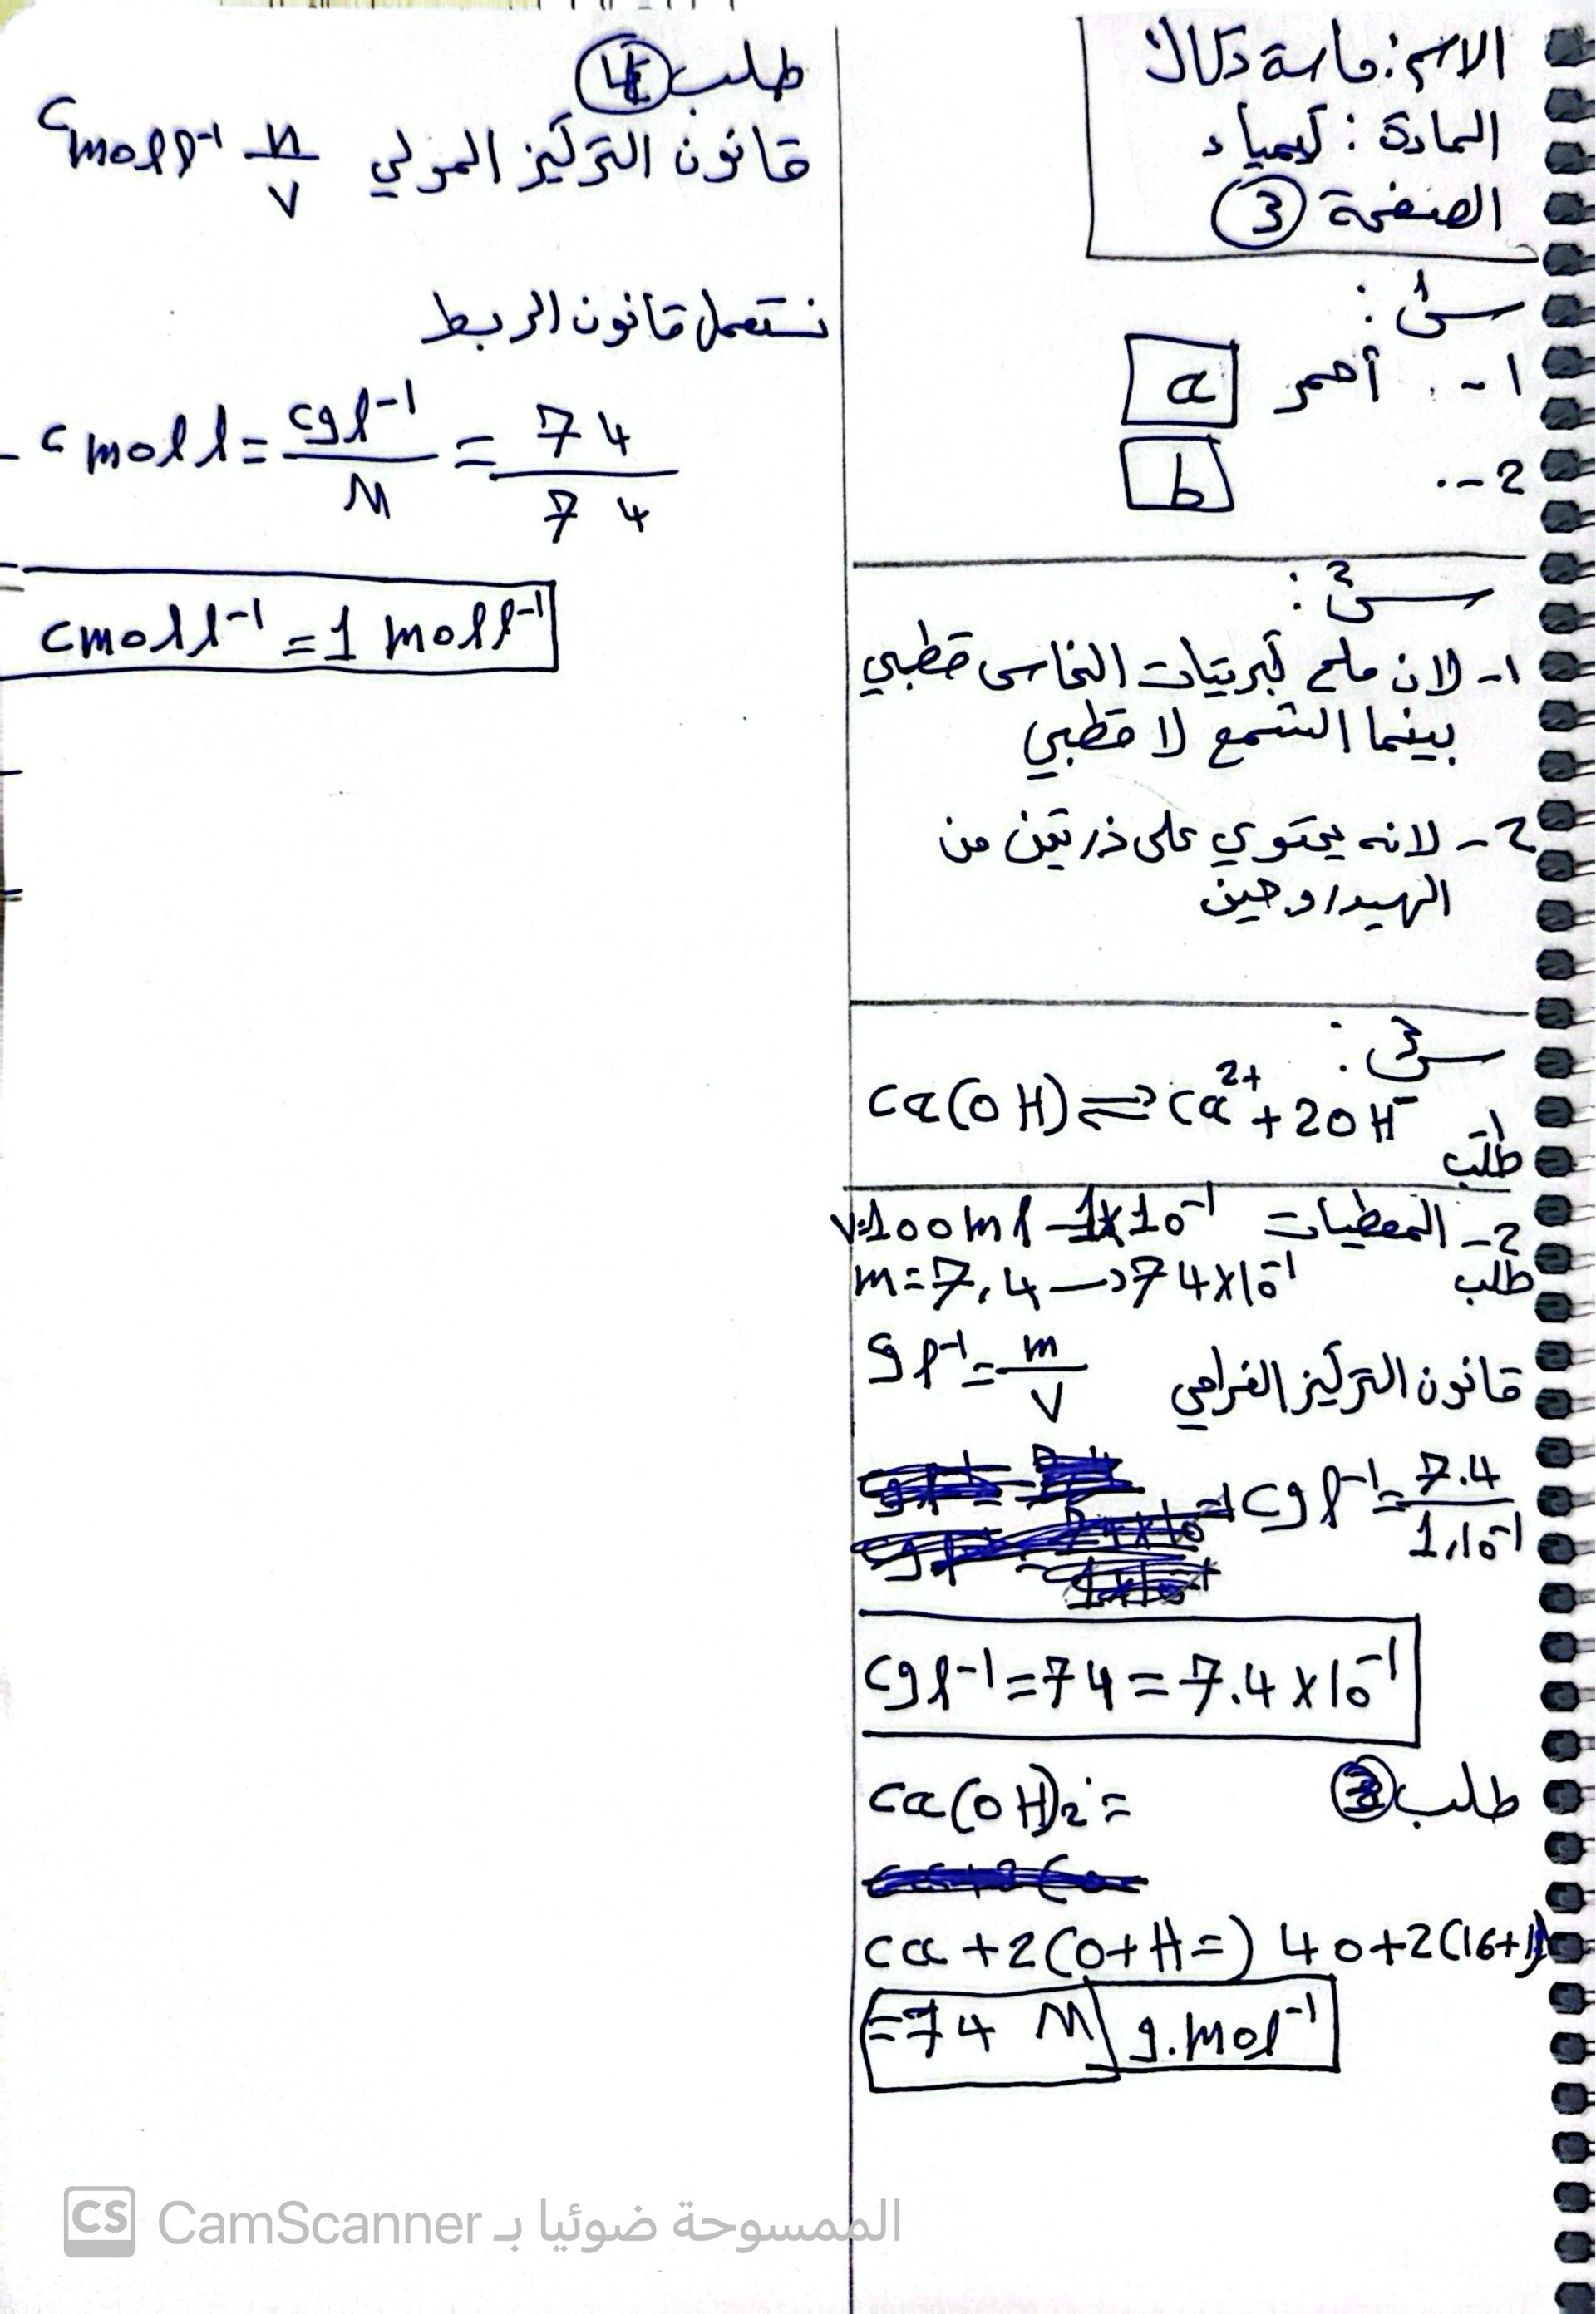 الاسم: ماسة دلال
المادة: كيمياء
الصفحة 3
س1:
1- أحمر a
2- b
س2:
1- لان ملح كبريتات النحاس قطبي
بينما الشمع لا قطبي
2- لانه يحتوي على ذرتين من
الهيدروجين
س3:
Ca(OH)⇌Ca²⁺+2OH⁻
طلب 1-
2- المعطيات V=100ml → 1x10⁻¹
طلب m=7,4 → 74x10⁻¹
قانون التركيز الغرامي gl⁻¹=m/V
Cgl⁻¹=7.4/1.10⁻¹
Cgl⁻¹=74=7.4x10⁻¹
طلب 3 Ca(OH)2=
Ca+2(O+H=) 40+2(16+1)
=74 M g.mol⁻¹
طلب 4
قانون التركيز المولي Cmoll⁻¹ n/V
نستعمل قانون الربط
Cmoll=Cgl⁻¹/M=74/74
Cmoll⁻¹=1 moll⁻¹
الممسوحة ضوئيا بـ CamScanner
CS